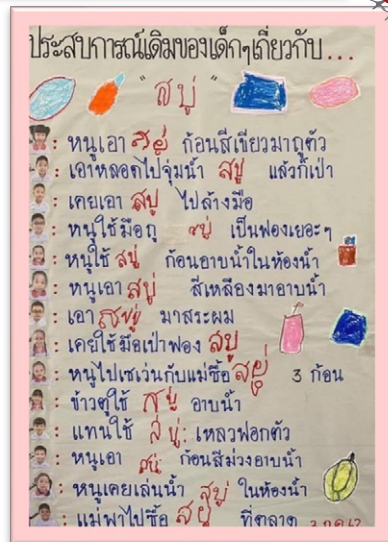 ประสบการณ์เดิมของเด็กๆเกี่ยวกับ...
"สบู่"
: หนูเอา สบู่ ก้อนสีเขียวมาถูตัว
: เอาหลอดไปจุ่มน้ำ สบู่ แล้วก็เป่า
: เคยเอา สบู่ ไปล้างมือ
: หนูใช้มือถู สบู่ เป็นฟองเยอะๆ
: หนูใช้ สบู่ ก้อนอาบน้ำในห้องน้ำ
: หนูเอา สบู่ สีเหลืองมาอาบน้ำ
: เอา สบู่ มาสระผม
: เคยใช้มือเป่าฟอง สบู่
: หนูไปเซเว่นกับแม่ซื้อ สบู่ 3 ก้อน
: ข้าวตูใช้ สบู่ อาบน้ำ
: แทนใช้ สบู่: เหลวฟอกตัว
: หนูเอา สบู่ ก้อนสีม่วงอาบน้ำ
: หนูเคยเล่นน้ำ สบู่ ในห้องน้ำ
: แม่พาไปซื้อ สบู่ ที่ตลาด